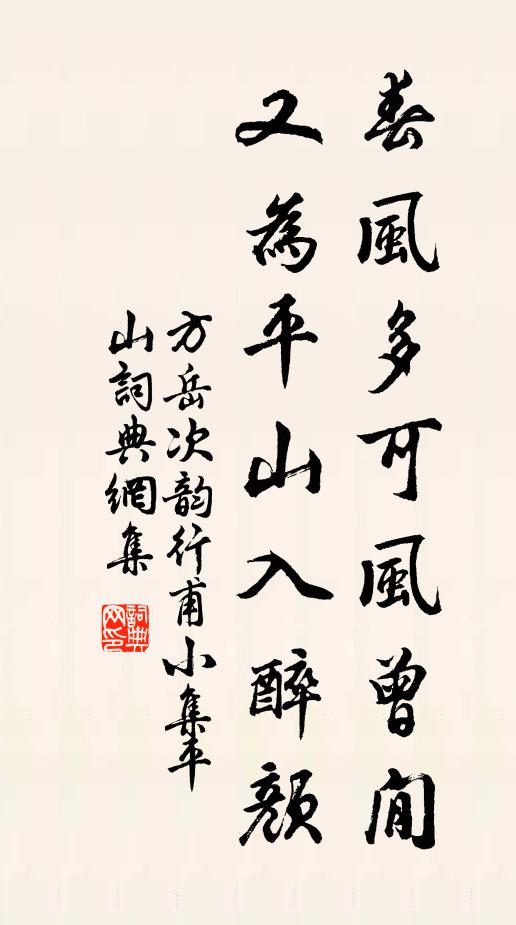 春風多可風曾閒
又為平山入醉顏
方岳次韵行甫小集平
山詞典網集
詞典网印